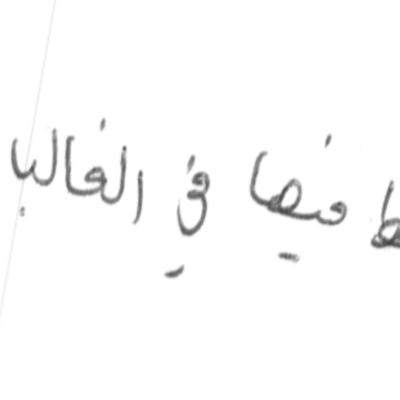 فيها في الغالب